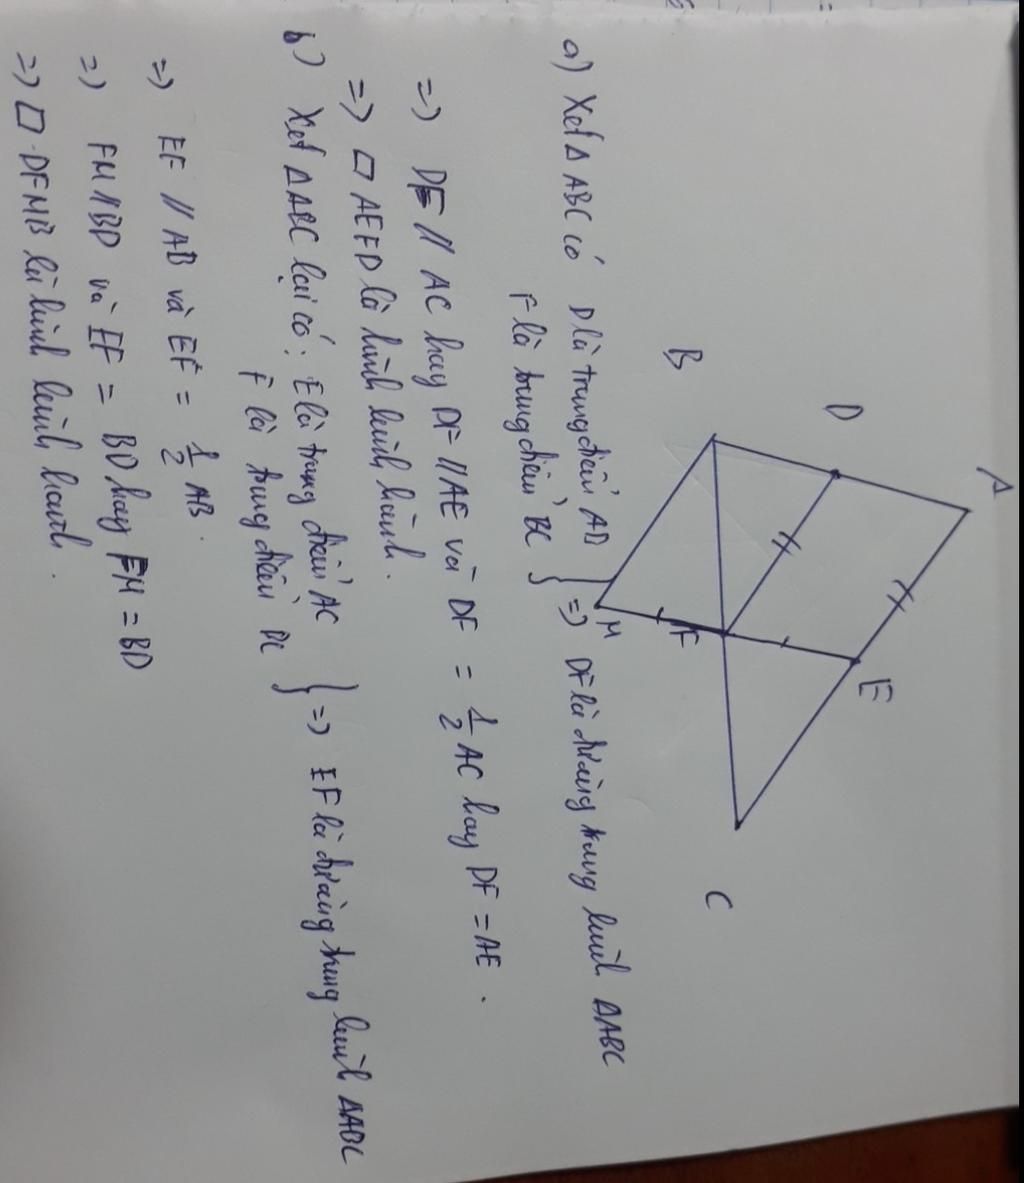 A
D
E
B
F
M
C
a) Xét Δ ABC có D là trung điểm AB
F là trung điểm BC } => DF là đường trung bình ΔABC
=> DF // AC hay DF // AE và DF = 1/2 AC hay DF = AE .
=> □ AEFD là hình bình hành.
b) Xét Δ ABC lại có : E là trung điểm AC
F là trung điểm BC } => EF là đường trung bình ΔABC
=> EF // AB và EF = 1/2 AB .
=> FM // BD và EF = BD hay FM = BD
=> □ DFMB là hình bình hành .